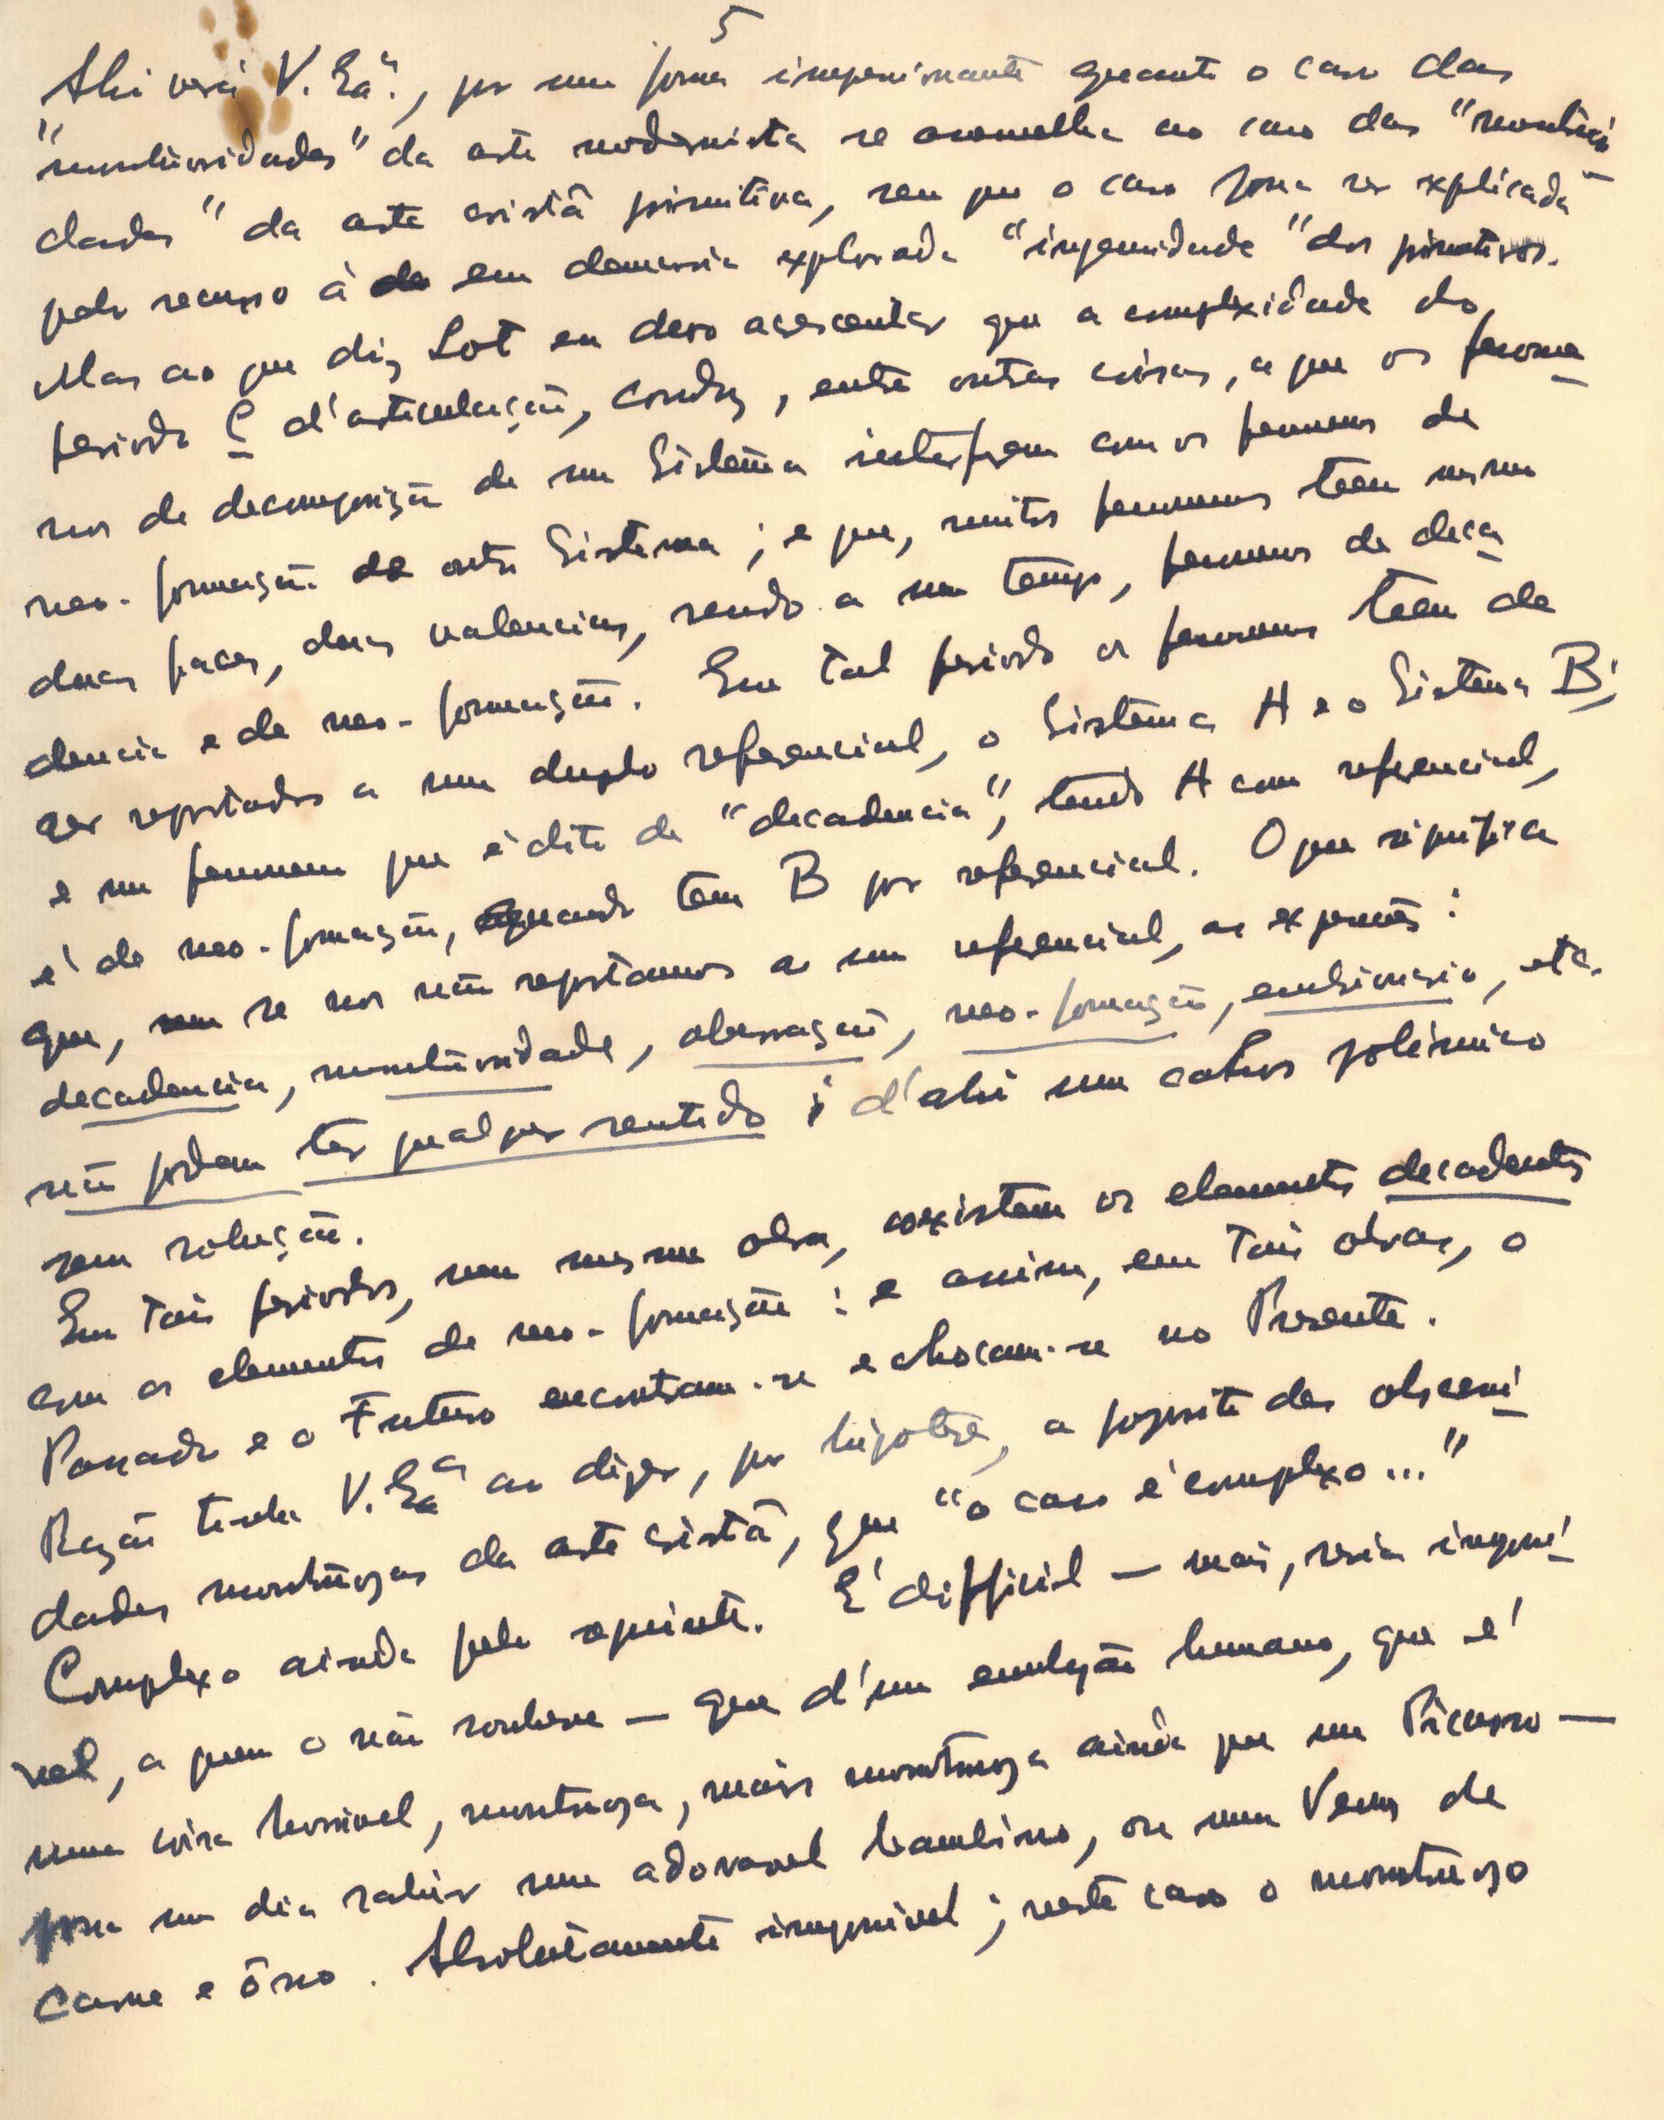 5
Ahi verá V. Exª., por uma forma impressionante quanto o caso das
"monstruosidades" da arte modernista se assemelha ao caso das "monstruosi
dades" da arte cristã primitiva, sem que o caso possa ser explicado
pelo recurso à em demasia explorada "ingenuidade" dos primitivos.
Mas ao que diz Lot eu devo acrescentar que a complexidade do
periodo C d'articulação, conduz, entre outras coisas, a que os fenome
nos de decomposição de um Sistema interfiram com os fenomenos de
neo-formação de outro Sistema; e que, muitos fenomenos teem mesmo
duas faces, duas valencias, sendo a um tempo, fenomenos de deca
dencia e de neo-formação. Em tal periodo os fenomenos teem de
ser reportados a um duplo referencial, o Sistema A e o Sistema B;
e um fenomeno que é dito de "decadencia", tendo A como referencial,
é de neo-formação, quando tem B por referencial. O que significa
que, se nos não reportamos a um referencial, as expressões:
decadencia, monstruosidade, aberração, neo-formação, embrionario, etc.
não podem ter qualquer sentido; d'ahi um cahos polémico
sem solução.
Em tais periodos, numa mesma obra, coexistem os elementos decadentes
com os elementos de neo-formação: e assim, em tais obras, o
Passado e o Futuro encontram-se e chocam-se no Presente.
Razão tinha V. Exª ao dizer, por hipotese, a proposito das obsceni
dades monstruosas da arte cristã, que "o caso é complexo..."
Complexo ainda pelo seguinte. É difficil — mais, seria impossi
vel, a quem o não soubesse — que d'um embryão humano, que é
uma coisa horrivel, monstruosa, mais monstruosa ainda que um Picasso —
possa um dia sahir um adoravel bambino, ou uma Venus de
carne e ôsso. Absolutamente impossivel; neste caso o monstruoso